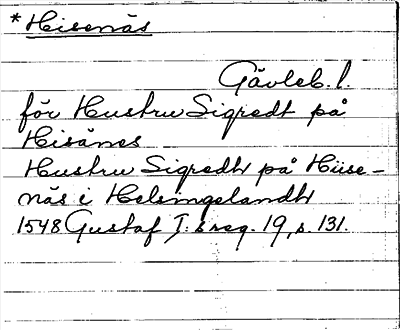 *Hisenäs
Gävleb. l.
för Hustru Sigredt på
Hisänes
Hustru Sigredh på Hiise-
näs i Helsingelandh
1548 Gustaf I:s reg. 19, s. 131.